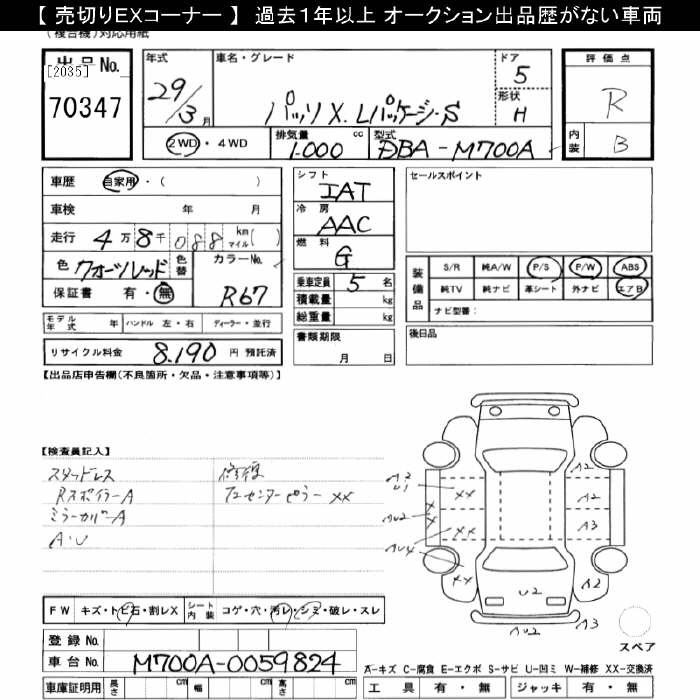 【 売切りEXコーナー 】 過去1年以上 オークション出品歴がない車両
(複合機)対応用紙
出品No.
[2035]
70347
年式
29/3月
車名・グレード
パッソ X. Lパッケージ・S
ドア
5
形状
H
評価点
R
内装
B
2WD・4WD
排気量
1.000 cc
型式
DBA-M700A
車歴 自家用・( )
車検 年 月
走行 4万8千088 km マイル( )
色 クオーツレッド
色替
カラーNo.
R67
保証書 有・無
シフト
IAT
冷房
AAC
燃料
G
乗車定員 5 名
積載量 kg
総重量 kg
書類期限
月 日
セールスポイント
装備品
S/R 純A/W P/S P/W ABS
純TV 純ナビ 革シート 外ナビ エアB
ナビ型番:
後日品
モデル年式 年 ハンドル 左・右 ディーラー・並行
リサイクル料金 8.190 円 預託済
【出品店申告欄(不良箇所・欠品・注意事項等)】
【検査員記入】
スタッドレス
Rスポイラー A
ミラーカバー A
A.U
修復
センターピラー XX
A2
U1
XX
X
X
AU2
XX
AU4
XX
A2
A2
A3
A3
U2
AU2
スペア
FW キズ・トビ石・割レX
シート内装 コゲ・穴・汚レ・シミ・破レ・スレ
登録No.
車台No. M700A-0059824
車庫証明用 長さ cm 幅 cm 高さ cm
A-キズ C-腐食 E-エクボ S-サビ U-凹ミ W-補修 XX-交換済
工具 有・無 ジャッキ 有・無